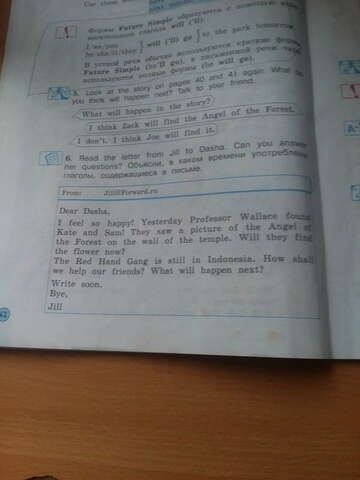 Формы Future Simple образуются с помощью
глагола will ('ll)
I/we/you
he/she/it/they } will ('ll) go } to the park tomorrow.
В устной речи обычно используются краткие формы
Future Simple (he'll go), в письменной речи чаще
используются полные формы (he will go).
5. Look at the story on pages 40 and 41 again. What do
you think will happen next? Talk to your friend.
What will happen in the story?
I think Zack will find the Angel of the Forest.
I don't. I think Joe will find it.
6. Read the letter from Jill to Dasha. Can you answer
her questions? Объясни, в каком времени употреблены
глаголы, содержащиеся в письме.
From: Jill@Forward.ru
Dear Dasha,
I feel so happy! Yesterday Professor Wallace found
Kate and Sam! They saw a picture of the Angel of
the Forest on the wall of the temple. Will they find
the flower now?
The Red Hand Gang is still in Indonesia. How shall
we help our friends? What will happen next?
Write soon.
Bye,
Jill
42